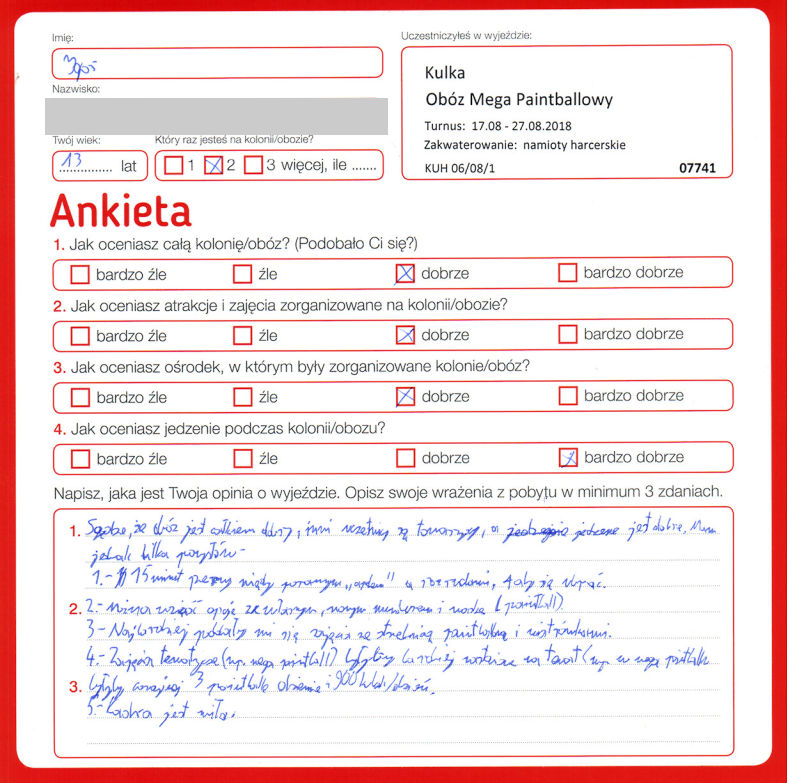 Imię:
Uczestniczyłeś w wyjeździe:
Nazwisko:
Kulka
Obóz Mega Paintballowy
Turnus: 17.08 - 27.08.2018
Zakwaterowanie: namioty harcerskie
KUH 06/08/1 07741
Twój wiek: Który raz jesteś na kolonii/obozie?
13 lat 1 2 3 więcej, ile .......
Ankieta
1. Jak oceniasz całą kolonię/obóz? (Podobało Ci się?)
bardzo źle źle dobrze bardzo dobrze
2. Jak oceniasz atrakcje i zajęcia zorganizowane na kolonii/obozie?
bardzo źle źle dobrze bardzo dobrze
3. Jak oceniasz ośrodek, w którym były zorganizowane kolonie/obóz?
bardzo źle źle dobrze bardzo dobrze
4. Jak oceniasz jedzenie podczas kolonii/obozu?
bardzo źle źle dobrze bardzo dobrze
Napisz, jaka jest Twoja opinia o wyjeździe. Opisz swoje wrażenia z pobytu w minimum 3 zdaniach.
1. że obóz jest całkiem dobry, inni uczestnicy są towarzyscy, a jedzenie jest dobre. Mam
jednak kilka pomysłów -
1.- 15 minut przerwy między porannym "apelem" a rozrzedami, żeby się ubrać.
2. 2.- Można wziąć opcję ze własnym, nowym mundurem i maską (paintball).
3 - Najbardziej podobały mi się zajęcia ze strzelnicą paintballową i
4.- Zajęcia tematyczne (np. mega paintball) byłyby bardziej na temat (np. w mega paintballu
3. byłyby 3 paintballe dziennie i 900 kulek/dzień.
5.- Kadra jest miła.